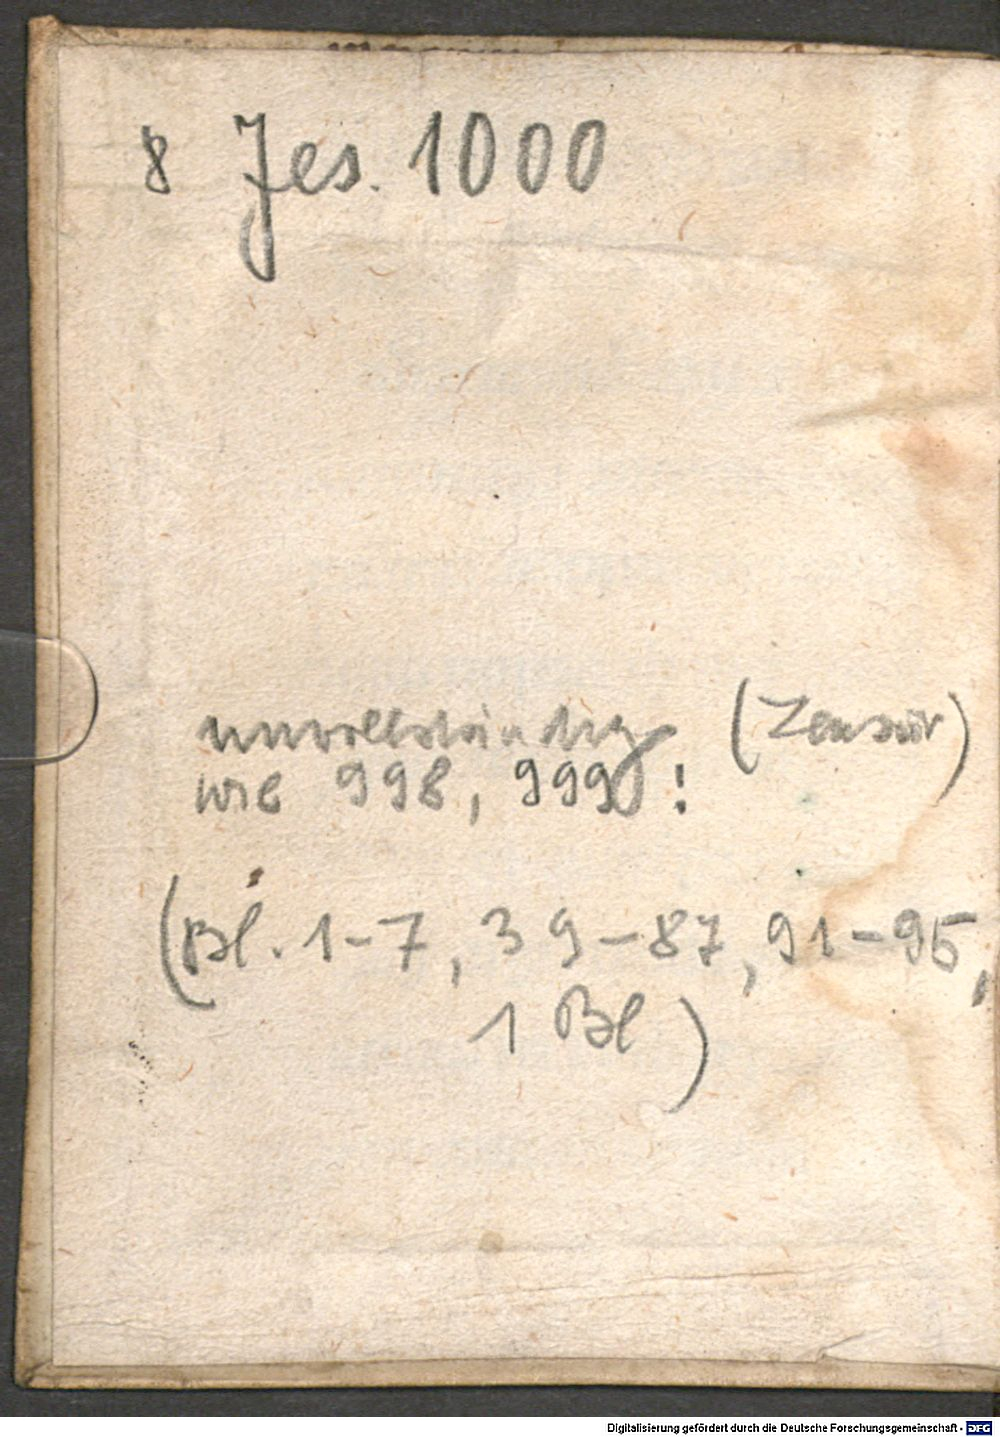 8 Jes. 1000
unvollständig (Zensur)
wie 998, 999!
(Bl. 1-7, 39-87, 91-95,
1 Bl)
Digitalisierung gefördert durch die Deutsche Forschungsgemeinschaft - DFG